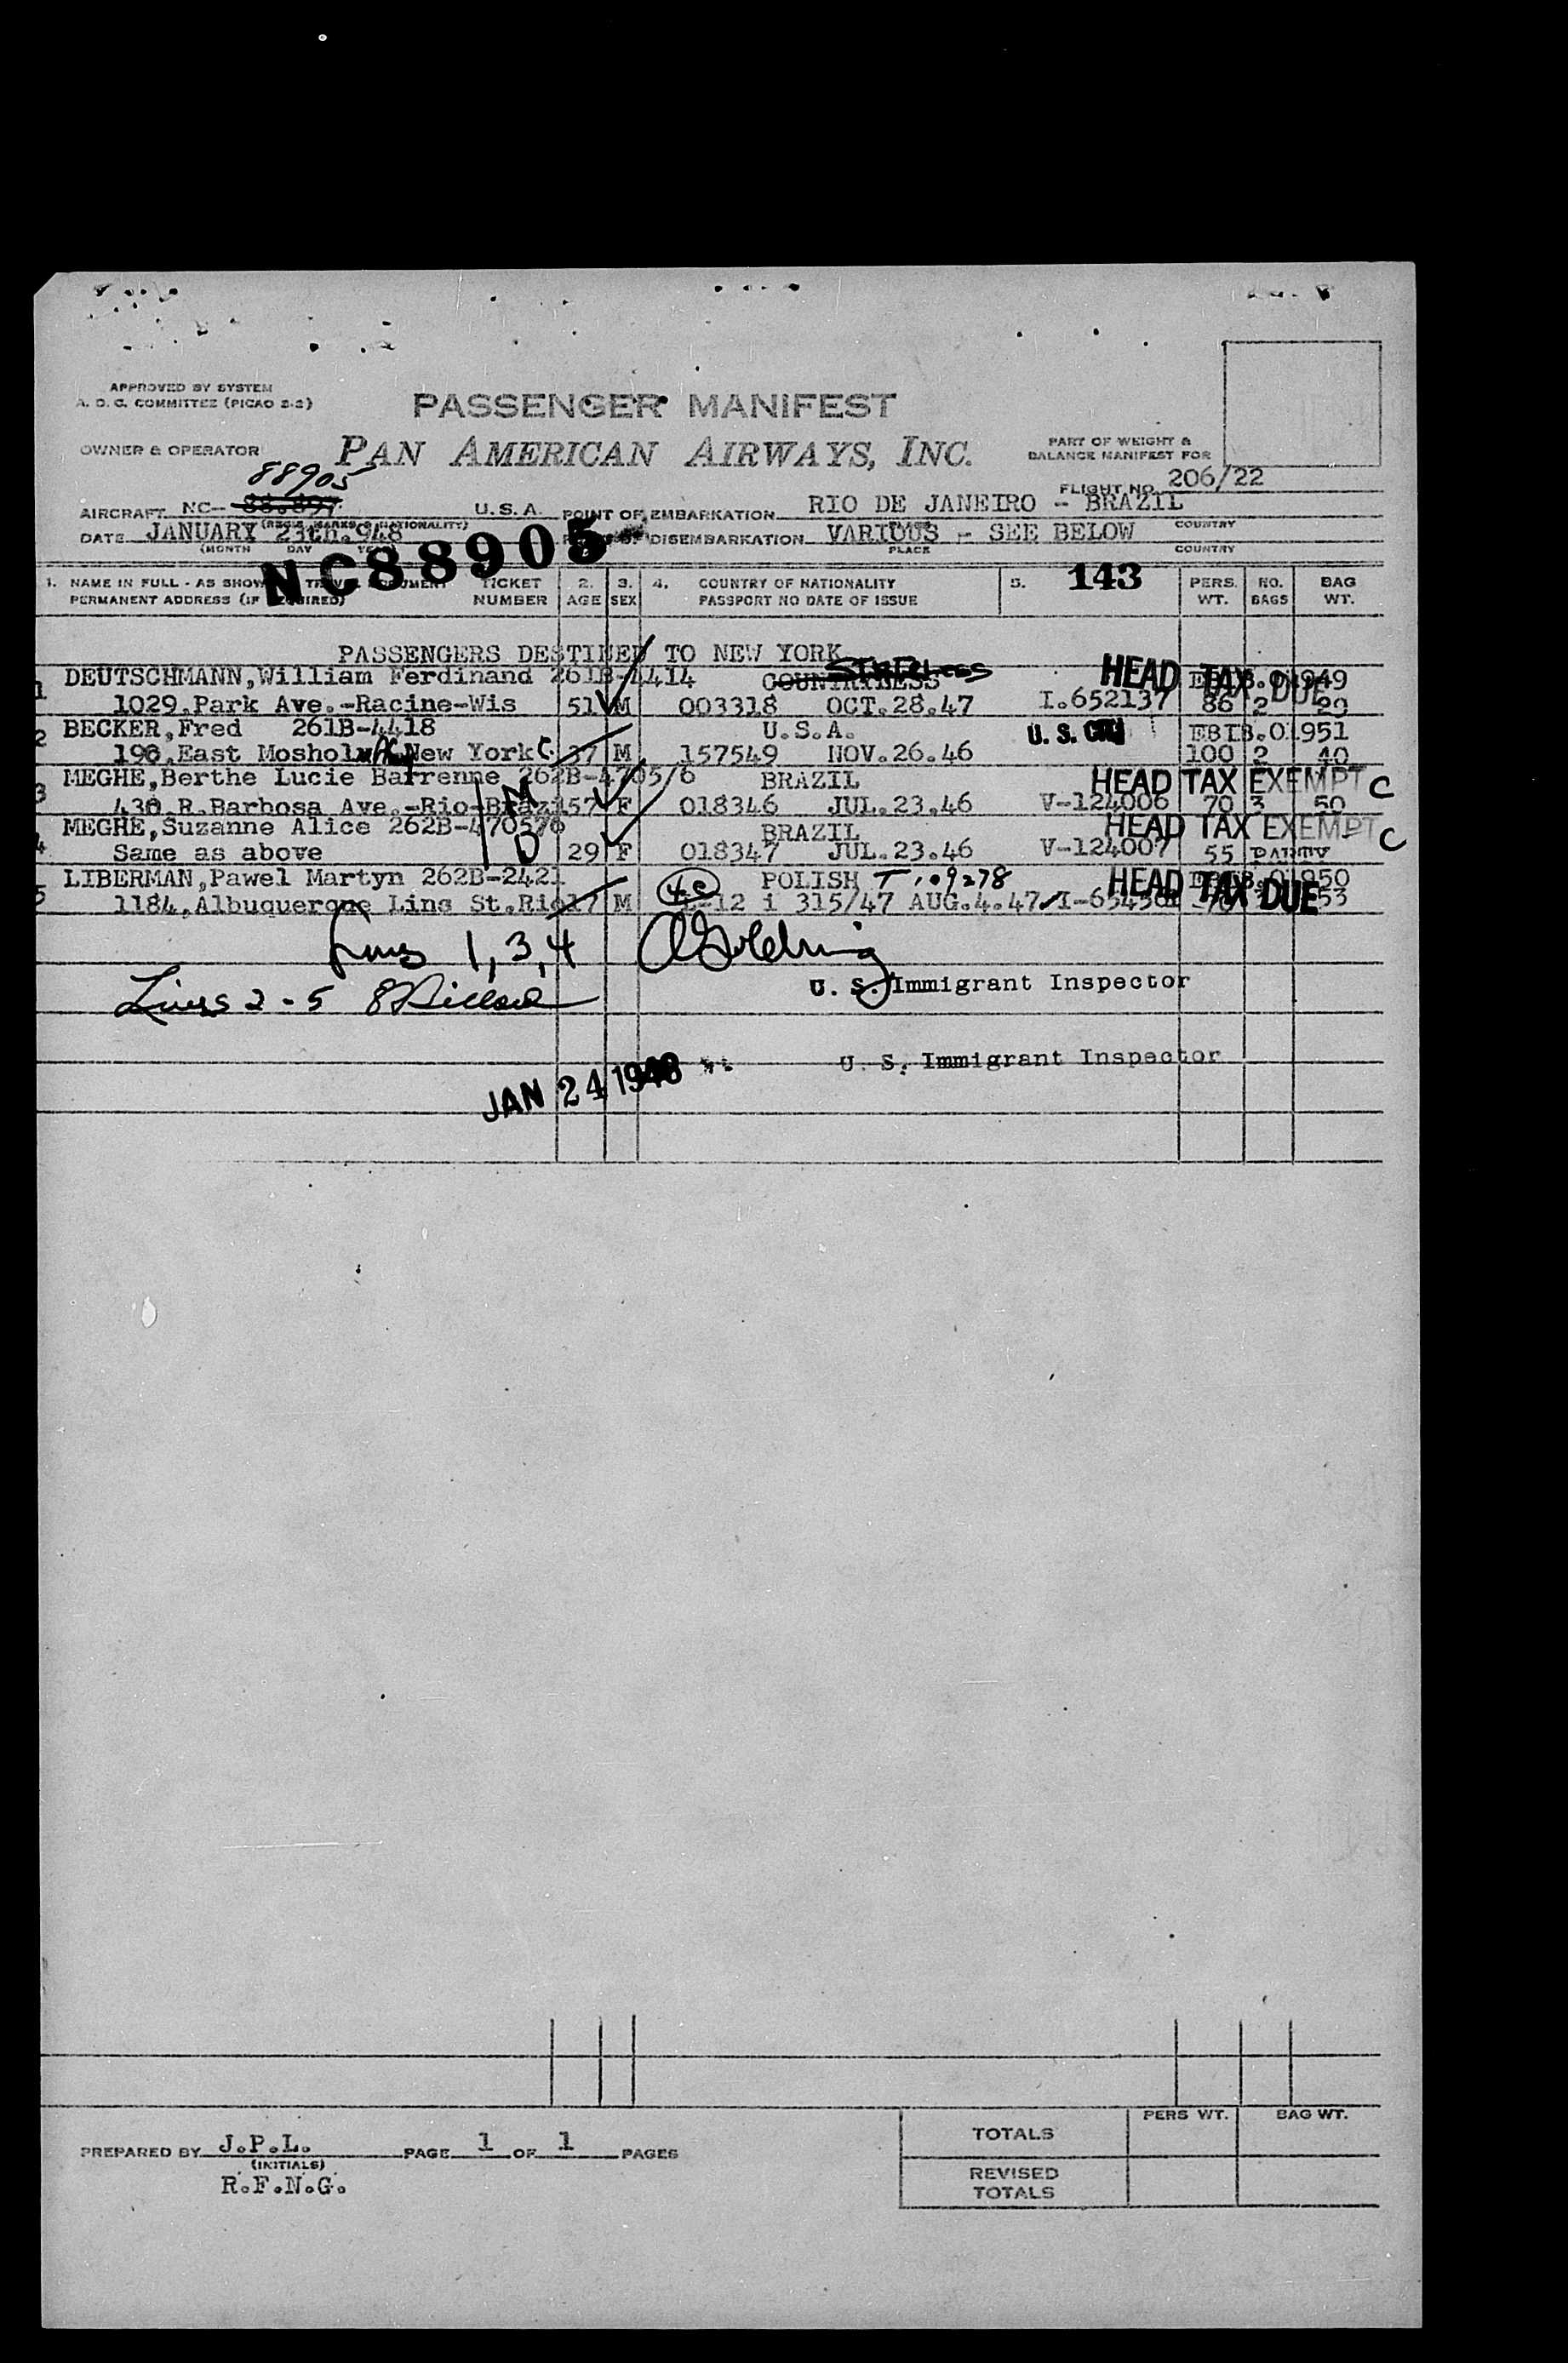 APPROVED BY SYSTEM
A. O. C. COMMITTEE (PICAO 2-2)
PASSENGER MANIFEST
OWNER & OPERATOR
PAN AMERICAN AIRWAYS, INC.
PART OF WEIGHT &
BALANCE MANIFEST FOR
FLIGHT NO. 206/22
88905
AIRCRAFT NC- U.S.A. POINT OF EMBARKATION RIO DE JANEIRO - BRAZIL
(REGIS. MARKS & NATIONALITY) PLACE COUNTRY
DATE JANUARY 23th.948 DISEMBARKATION VARIOUS - SEE BELOW
(MONTH DAY YEAR) PLACE COUNTRY
NC88905
1. NAME IN FULL - AS SHOWN TICKET 2. 3. 4. COUNTRY OF NATIONALITY 5. 143 PERS. NO. BAG
PERMANENT ADDRESS (IF REQUIRED) NUMBER AGE SEX PASSPORT NO DATE OF ISSUE WT. BAGS WT.
PASSENGERS DESTINED TO NEW YORK
1 DEUTSCHMANN,William Ferdinand 261B-4414 COUNTRYLESS STATELESS HEAD TAX DUE
1029.Park Ave.-Racine-Wis 51 M 003318 OCT.28.47 I.652137 86 2 29
2 BECKER,Fred 261B-4418 U.S.A. U.S. CIT EBIB.01951
196.East Mosholu New York 37 M 157549 NOV.26.46 100 2 40
3 MEGHE,Berthe Lucie Barrenne 262B-4705/6 BRAZIL HEAD TAX EXEMPT C
430.R.Barbosa Ave.-Rio-Brazil 57 F 018346 JUL.23.46 V-124006 70 3 50
4 MEGHE,Suzanne Alice 262B-4705/6 BRAZIL HEAD TAX EXEMPT C
Same as above 29 F 018347 JUL.23.46 V-124007 55 PARTY
5 LIBERMAN,Pawel Martyn 262B-2421 POLISH HEAD TAX DUE
1184,Albuquerque Lins St.Rio 17 M 4c 12 i 315/47 AUG.4.47 53
Lines 1,3,4
U. S. Immigrant Inspector
Lines 2-5
U. S. Immigrant Inspector
JAN 24 1948
PERS WT. BAG WT.
TOTALS
PREPARED BY J.P.L. PAGE 1 OF 1 PAGES
(INITIALS)
R.F.N.G.
REVISED
TOTALS